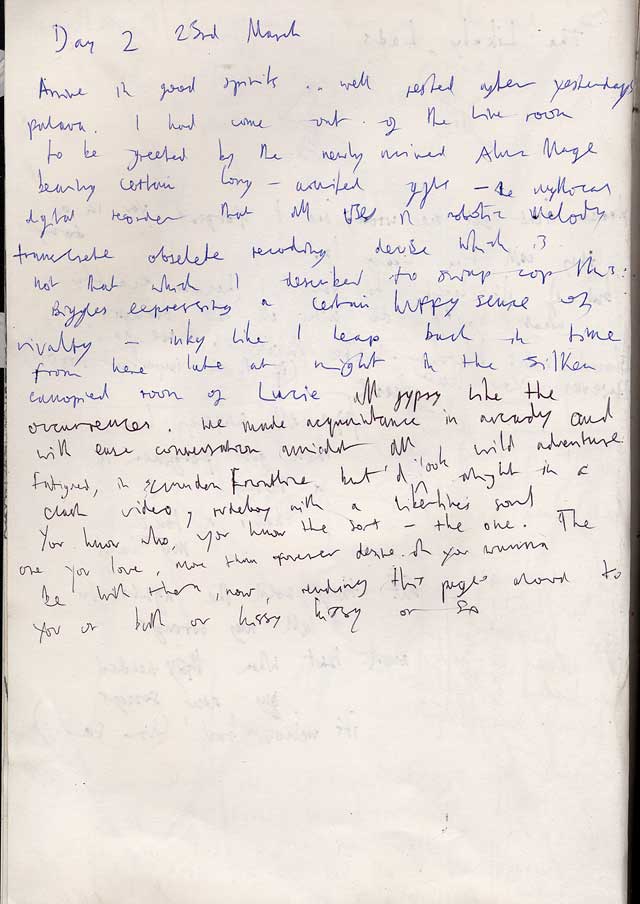 Day 2 23rd March
Arrive in good spirits .. well rested after yesterdays
palava. I had come out of the live room
to be greeted by the newly arrived
bearing certain long-awaited - the mythical
digital recorder that all uses robotic melody
obsolete recording devise which is
not that which I described to this:
Biggles expressing a certain huffy sense of
rivalry - inky like I leap back in time
from here late at night in the silken
canopied room of Lucie all gypsy like the
occurrences. We made acquaintance in arcady and
with ease conversation amidst all wild adventure
Fatigued, in frontline but alright in a
clash video, rudeboy with a libertines soul
You know who, you know the sort - the one. The
one you love, more than forever desire. Oh you wanna
be with them, now, reading this page aloud to
you or both or kissy kissy or so